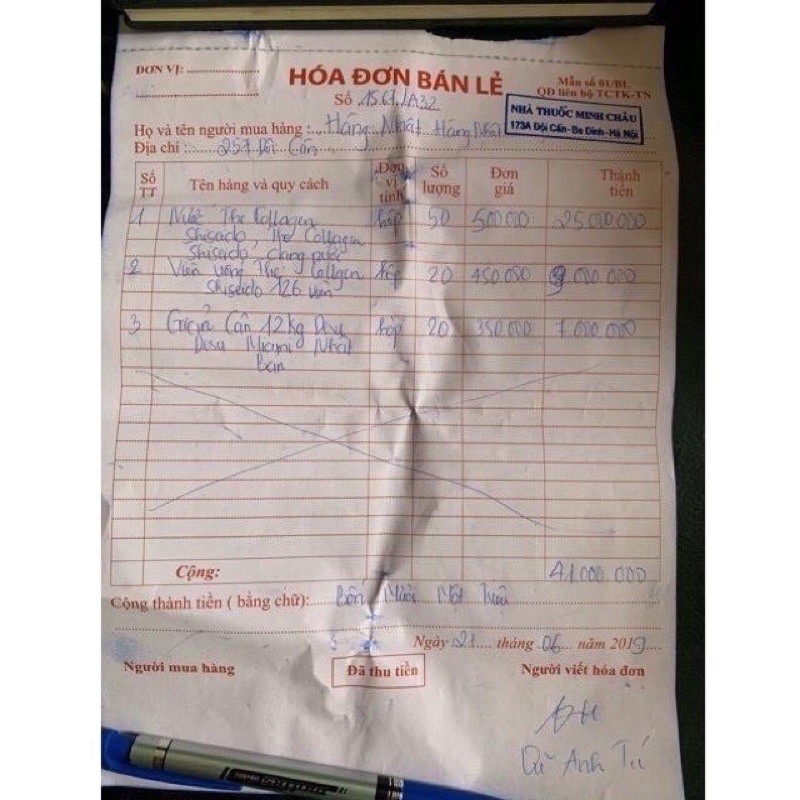 ĐƠN VỊ: ....................
HÓA ĐƠN BÁN LẺ
Mẫu số 01/BL
QĐ liên bộ TCTK-TN
Số 1561/A32
NHÀ THUỐC MINH CHÂU
173A Đội Cấn-Ba Đình-Hà Nội
Họ và tên người mua hàng : Hàng Nhật Hàng Nhật
Địa chỉ : 257 Đội Cấn
Số TT Tên hàng và quy cách Đơn vị tính Số lượng Đơn giá Thành tiền
1 Nước The Collagen hộp 50 500.000 25.000.000
Shiseido, The Collagen
Shiseido dạng nước
2 Viên uống The Collgen hộp 20 450.000 9.000.000
Shiseido 126 viên
3 Giảm Cân 12kg hộp 20 350.000 7.000.000
Nhật
Bản
Cộng: 41.000.000
Cộng thành tiền ( bằng chữ): Bốn Mươi Mốt Triệu
Ngày 21 tháng 06 năm 2019
Người mua hàng Đã thu tiền Người viết hóa đơn
Anh Tú